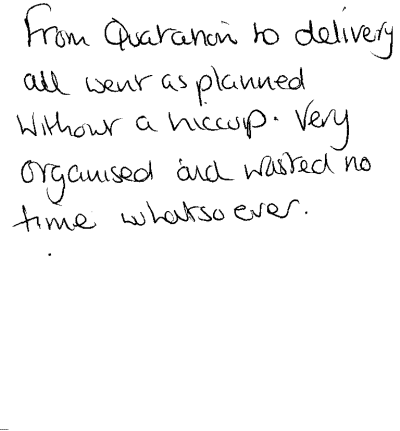 From Quotation to delivery
all went as planned
without a hiccup. Very
organised and wasted no
time whatsoever.